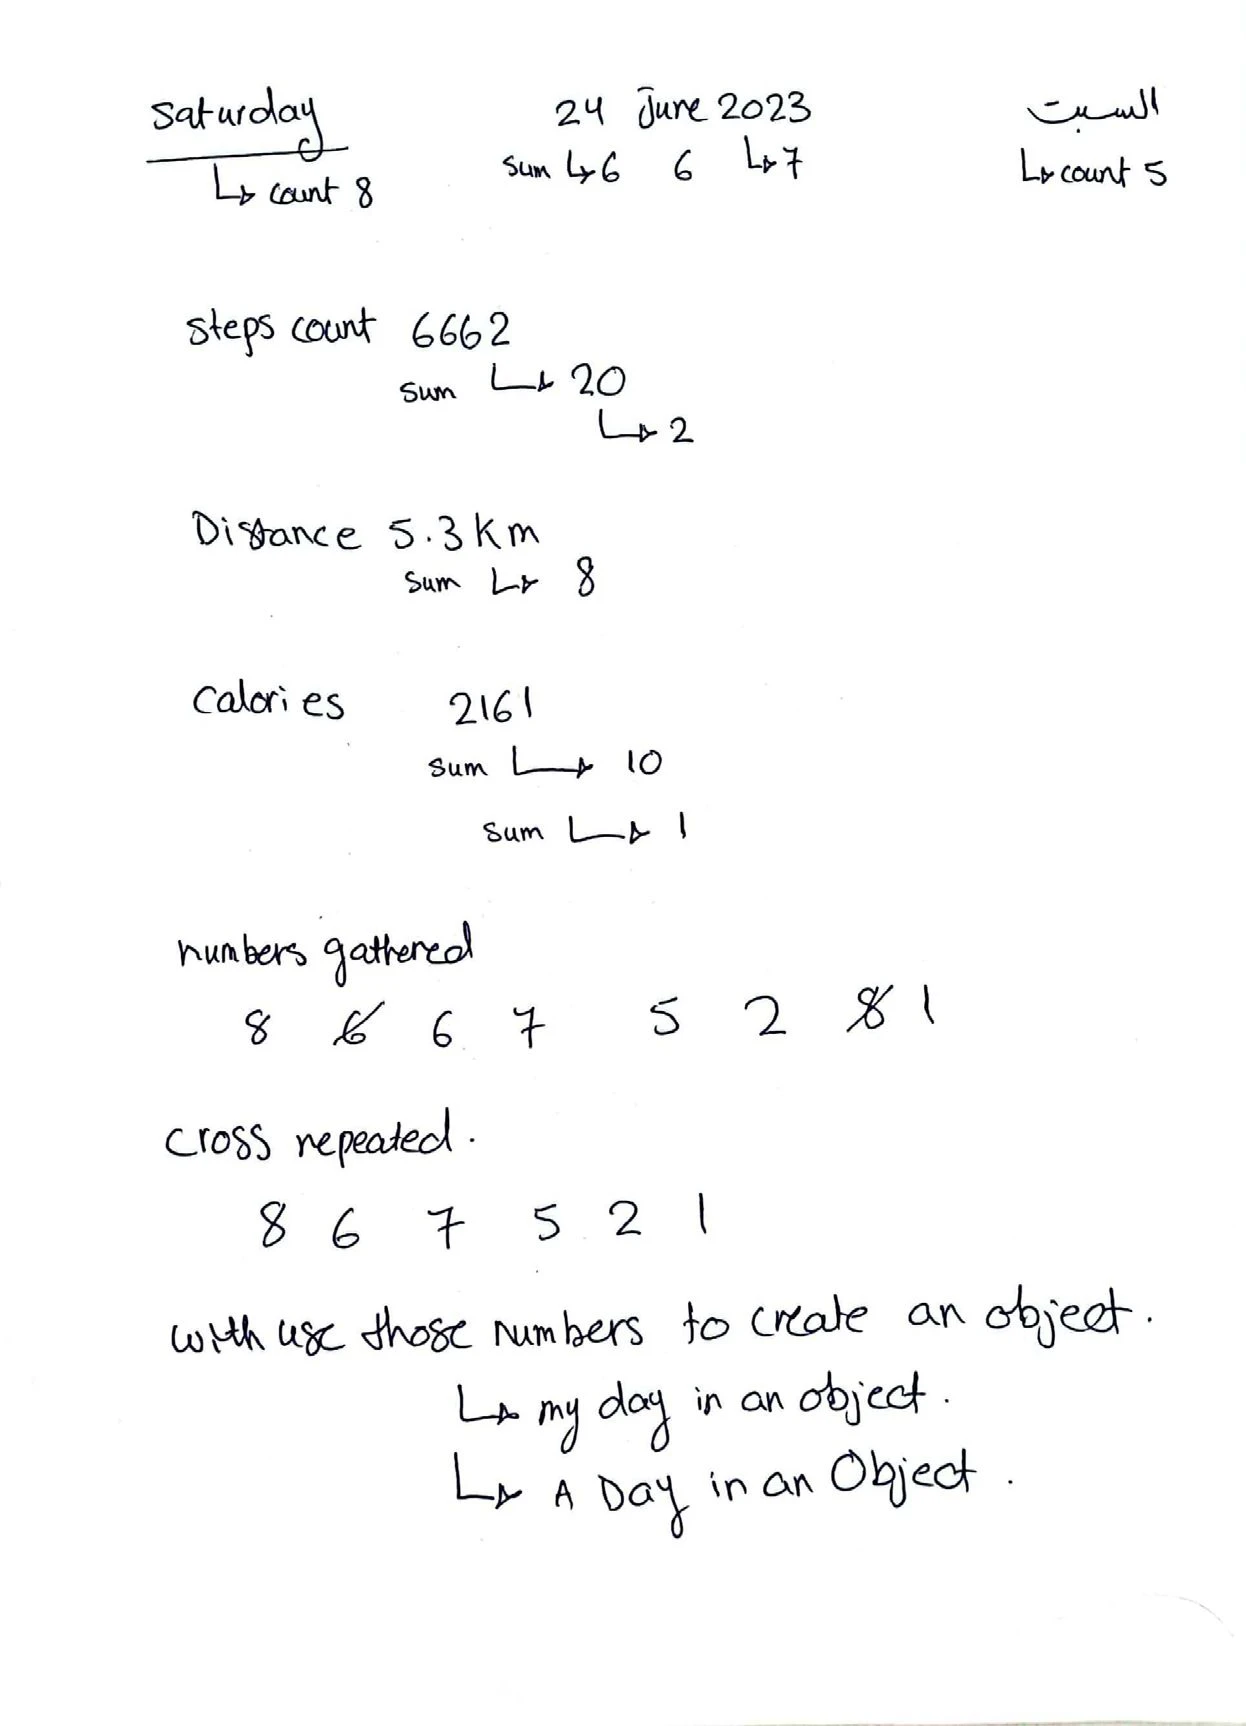 Saturday 24 June 2023 السبت
↳ count 8 sum ↳ 6 6 ↳ 7 ↳ count 5
steps count 6662
sum ↳ 20
↳ 2
Distance 5.3 km
sum ↳ 8
Calories 2161
sum ↳ 10
sum ↳ 1
numbers gathered
8 6 6 7 5 2 8 1
cross repeated.
8 6 7 5 2 1
with use those numbers to create an object.
↳ my day in an object.
↳ A Day in an Object.